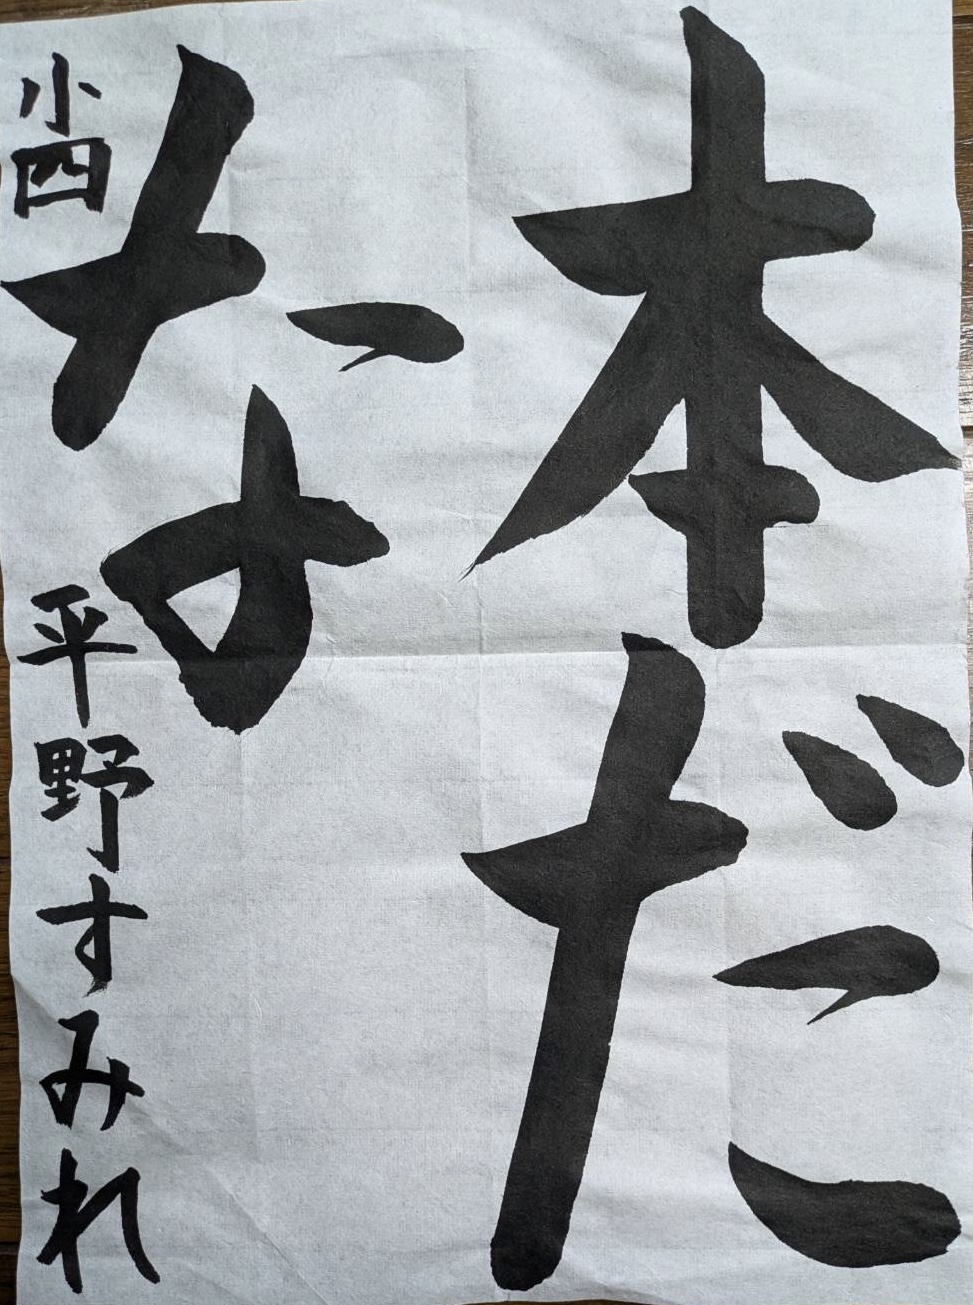 本だ
な
小四 平野すみれ